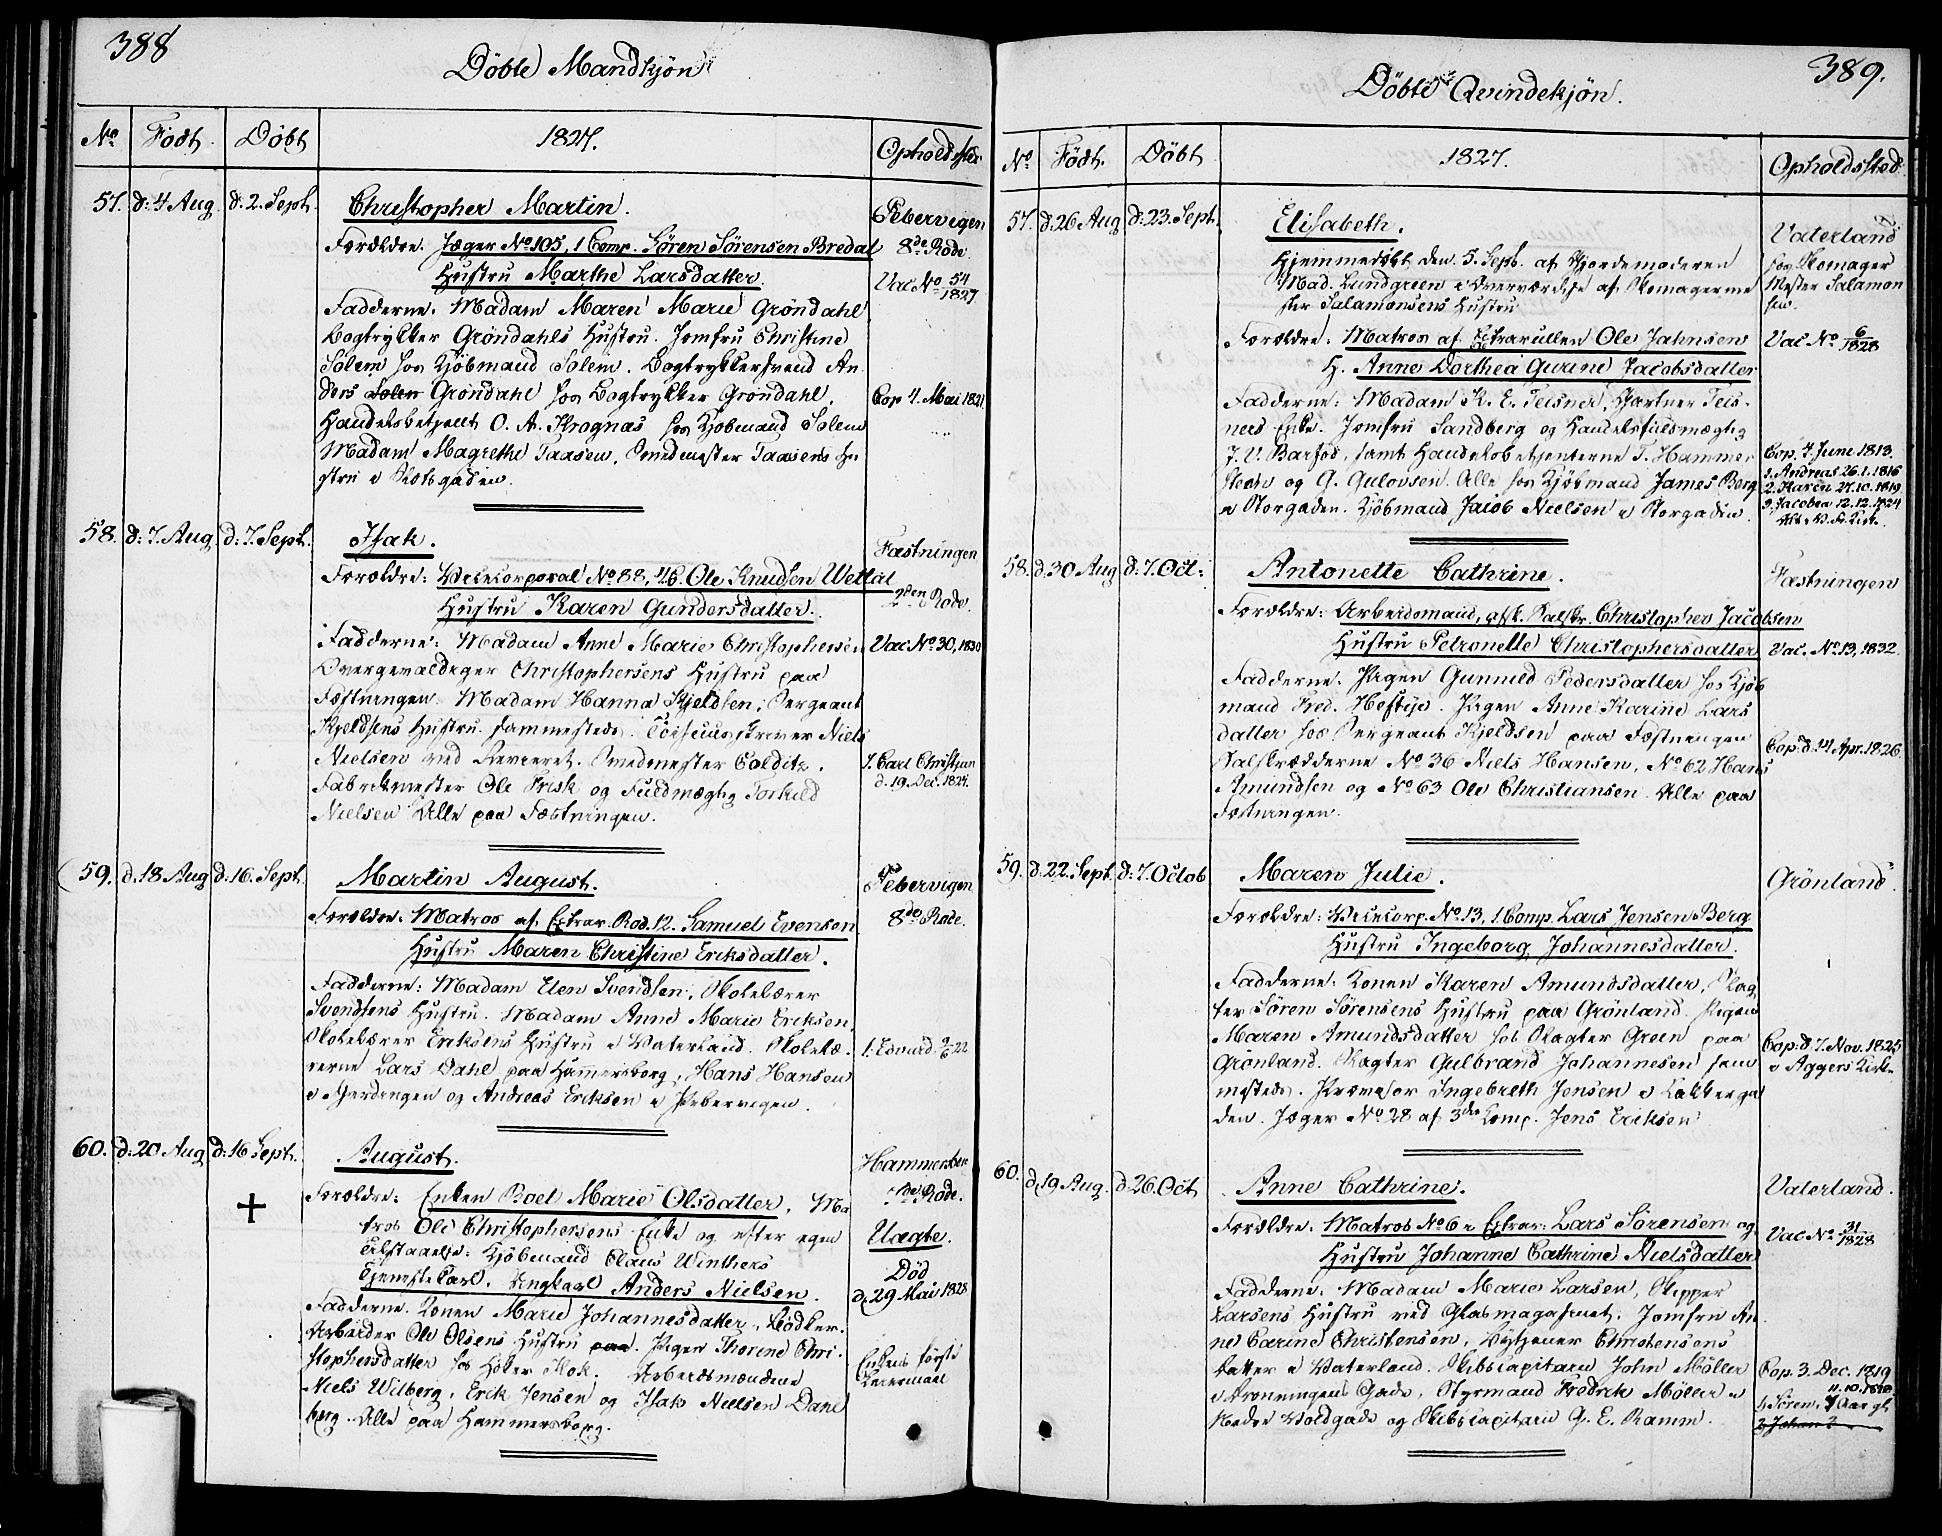 388
Döbte Mandkjön
No Født. Döbt 1827. Opholdssted
57. d: 4 Aug. d. 2. Sept. Christopher Martin. Pebervigen
Forældre. Jæger No 105, 1 Comp. Sören Sörensen Bredal 8de Rode
Hustru Marthe Larsdatter. Vac No 54/1827
Fadderne. Madam Maren Marie Gröndahl
Bogtrykker Gröndahls Hustru. Jomfru Christine
Solem hos Kjöbmand Solem. Bogtrykkersvend An
ders Solem Gröndahl hos Bogtrykker Gröndahl. Cop 4. Mai 1821
Handelsbetjent O. A. Krognæs hos Kjöbmand Solem
Madam Magrethe Taasen, Smedmester Taasens Hu
stru i
58. d: 7. Aug. d: 7. Sept. Isak. Fæstningen
Forældre: Vicecorporal No 88, 4 C. Ole Knudsen Wetlal 2den Rode.
Hustru Karen Gundersdatter.
Fadderne: Madam Anne Marie Christophersen Vac No 30, 1830
Overgevaldiger Christophersens Hustru paa
Fæstningen. Madam Hanna Kjeldsen, Sergeant
Kjeldsens Hustru sammesteds. Niels
Nielsen ved Revieret. Smedmester Colditz. 1. Carl Christian
Fabrikmester Ole Frisk og Fuldmægtig Torkild d. 19. Dec. 1824.
Nielsen Alle paa Fæstningen.
59. d. 18 Aug d. 16. Sept. Martin August. Pebervigen
Forældre. Matros af Extrar. Rod. 12. Samuel Evensen 8de Rode.
Hustru Maren Christine Eriksdatter.
Fadderne: Madam Elen Svendsen, Skolelærer
Svendsens Hustru. Madam Anne Marie Eriksen
Skolelærer Eriksens Hustru i Vaterland. Skolelæ- 1. Edvard 9/6 22
rerne Lars Dahl paa Hammersborg, Hans Hansen
i Gardingen og Andreas Eriksen i Pebervigen.
60. d: 20 Aug d: 16 Sept. August. Hammersborg
+ Forældre: Enken Boel Marie Olsdatter, Ma Rode.
tros Ole Christophersens Enke og efter egen Uægte.
Tilstaaelse: Kjöbmand Claus Winthers Död
Tjenestekarl. Ungkarl Anders Nielsen. d. 29 Mai 1828
Fadderne. Konen Marie Johannesdatter,
Arbeider Ole Olsens Hustru paa. Pigen Thorine Chri- Enkens förste
stophersdatter hos Höker Kok. Arbeidsmændene Leiermaal
Niels Wilberg, Erik Jensen og Isak Nielsen Dahl
berg. Alle paa Hammersborg.
389.
Döbte Qvindekjön.
No. Födt. Döbt 1827. Opholdssted
57. d. 26 Aug d: 23. Sept. Elisabeth. Vaterland
Hjemmedöbt den 5. Sept. af Gjordemoderen hos Skomager
Mad. Lundgreen i Overværelse af Skomagerme Mester Salamon
ster Salamonsens Hustru sen.
Forældre. Matros af Extrarullen Ole Jahnsen Vac No 6/1828
H. Anne Dorthea Gurine Jacobsdatter
Fadderne: Madam K. E. Teisner, Gartner Teis-
ners Enke. Jomfru Sandberg og Handelsfuldmægtig
J. V. Barfod, samt Handelsbetjenterne T. Hammer Cop. 7. June 1813.
og G. Gulovsen. Alle hos Kjöbmand James Berg 1. Andreas 26.1.1816
i Storgaden. Kjöbmand Jacob Nielsen i Storgaden. 2. Karen 27.10.1819
3. Jacobea 12.12.1824
58. d. 30 Aug d: 7. Oct: Antonette Cathrine. Fæstningen
Forældre: Arbeidsmand, afsk. Salsk. Christopher Jacobsen
Hustru Petronelle Christophersdatter Vac. No 13, 1832.
Fadderne. Pigen Gunnild Pedersdatter hos Kjöb
mand Fred. Heftije. Pigen Anne Karine Lars
datter hos Sergeant Kjeldsen paa Fæstningen Cop. d. 14 Apr. 1826.
Salskrædderne No 36 Niels Hansen, No 62 Hans
Amundsen og No 63 Ole Christiansen. Alle paa
Fæstningen.
59. d. 22. Sept. d: 7. Octob Maren Julie. Grönland
Forældre: Vicecorp. No 13, 1. Comp. Lars Jensen Berg
Hustru Ingeborg Johannesdatter.
Fadderne: Konen Karen Amundsdatter, Slag
ter Sören Sörensens Hustru paa Grönland. Pigen
Maren Amundsdatter hos Slagter Green paa Cop: d. 7. Nov. 1825
Grönland. Slagter Gulbrand Johannesen sam i Aggers Kirke
mesteds. Ingebreth Jensen i Lakkerga
den. Jæger No 28 af 3de Comp. Jens Eriksen
60. d. 19 Aug. d. 26. Oct Anne Cathrine. Vaterland.
Forældre: Matros No 6 i Extrar: Lars Sörensen og Vac No 31/1828
Hustru Johanne Cathrine Nielsdatter
Fadderne: Madam Marie Larsen, Skipper
Larsens Hustru ved Glasmagasinet. Jomfru An
ne Carine Christensen, Christensens
Datter i Vaterland. Skibscapitain John Möller Cop. 3. Dec. 1819
i Dronningens Gade, Styrmand Fredrik Möller i 11.10.1820
Nedre Voldgade og Skibscapitain G. E. Ramm. 1, Sören, 7 Aar gl.
2, Johan ?